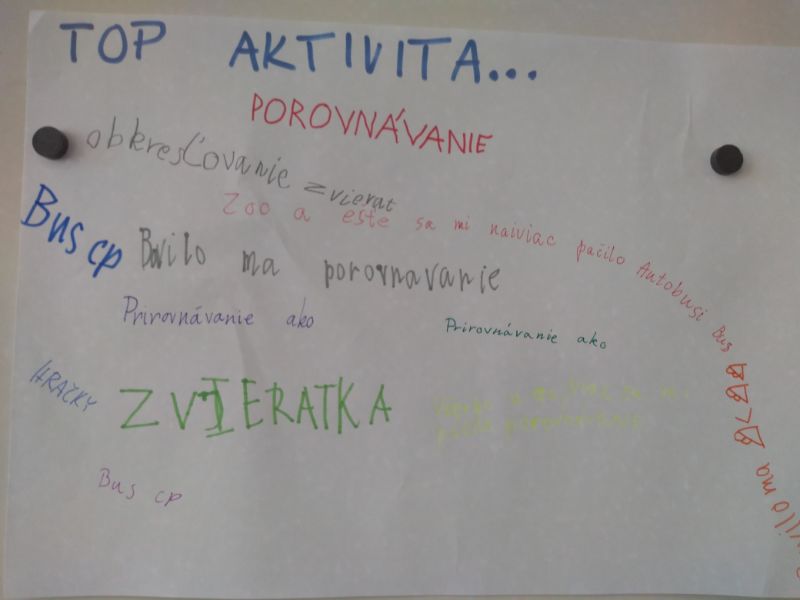 TOP AKTIVITA...
POROVNÁVANIE
obkresľovanie zvierat
Zoo a ešte sa mi naiviac páčilo Autobusi Bus
Bus cp
Bavilo ma porovnavanie
Prirovnávanie ako
Prirovnávanie ako
HRAČKY
ZVIERATKA
Bus cp
ma